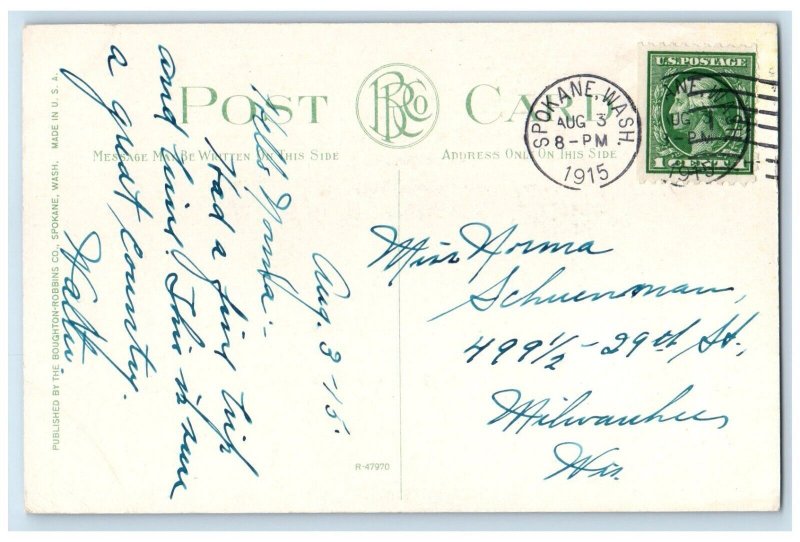 POST CARD
BRCo
MESSAGE MAY BE WRITTEN ON THIS SIDE
ADDRESS ONLY ON THIS SIDE
U.S. POSTAGE
1 CENT 1
SPOKANE, WASH.
AUG 3
8-PM
1915
Aug. 3-15.
Hello Norma:-
Had a fine trip
and time. This is sure
a great country.
Walter.
Miss Norma
Schuenman,
499½-29th St.,
Milwaukee,
Wis.
R-47970
PUBLISHED BY THE BOUGHTON-ROBBINS CO., SPOKANE, WASH. MADE IN U. S. A.